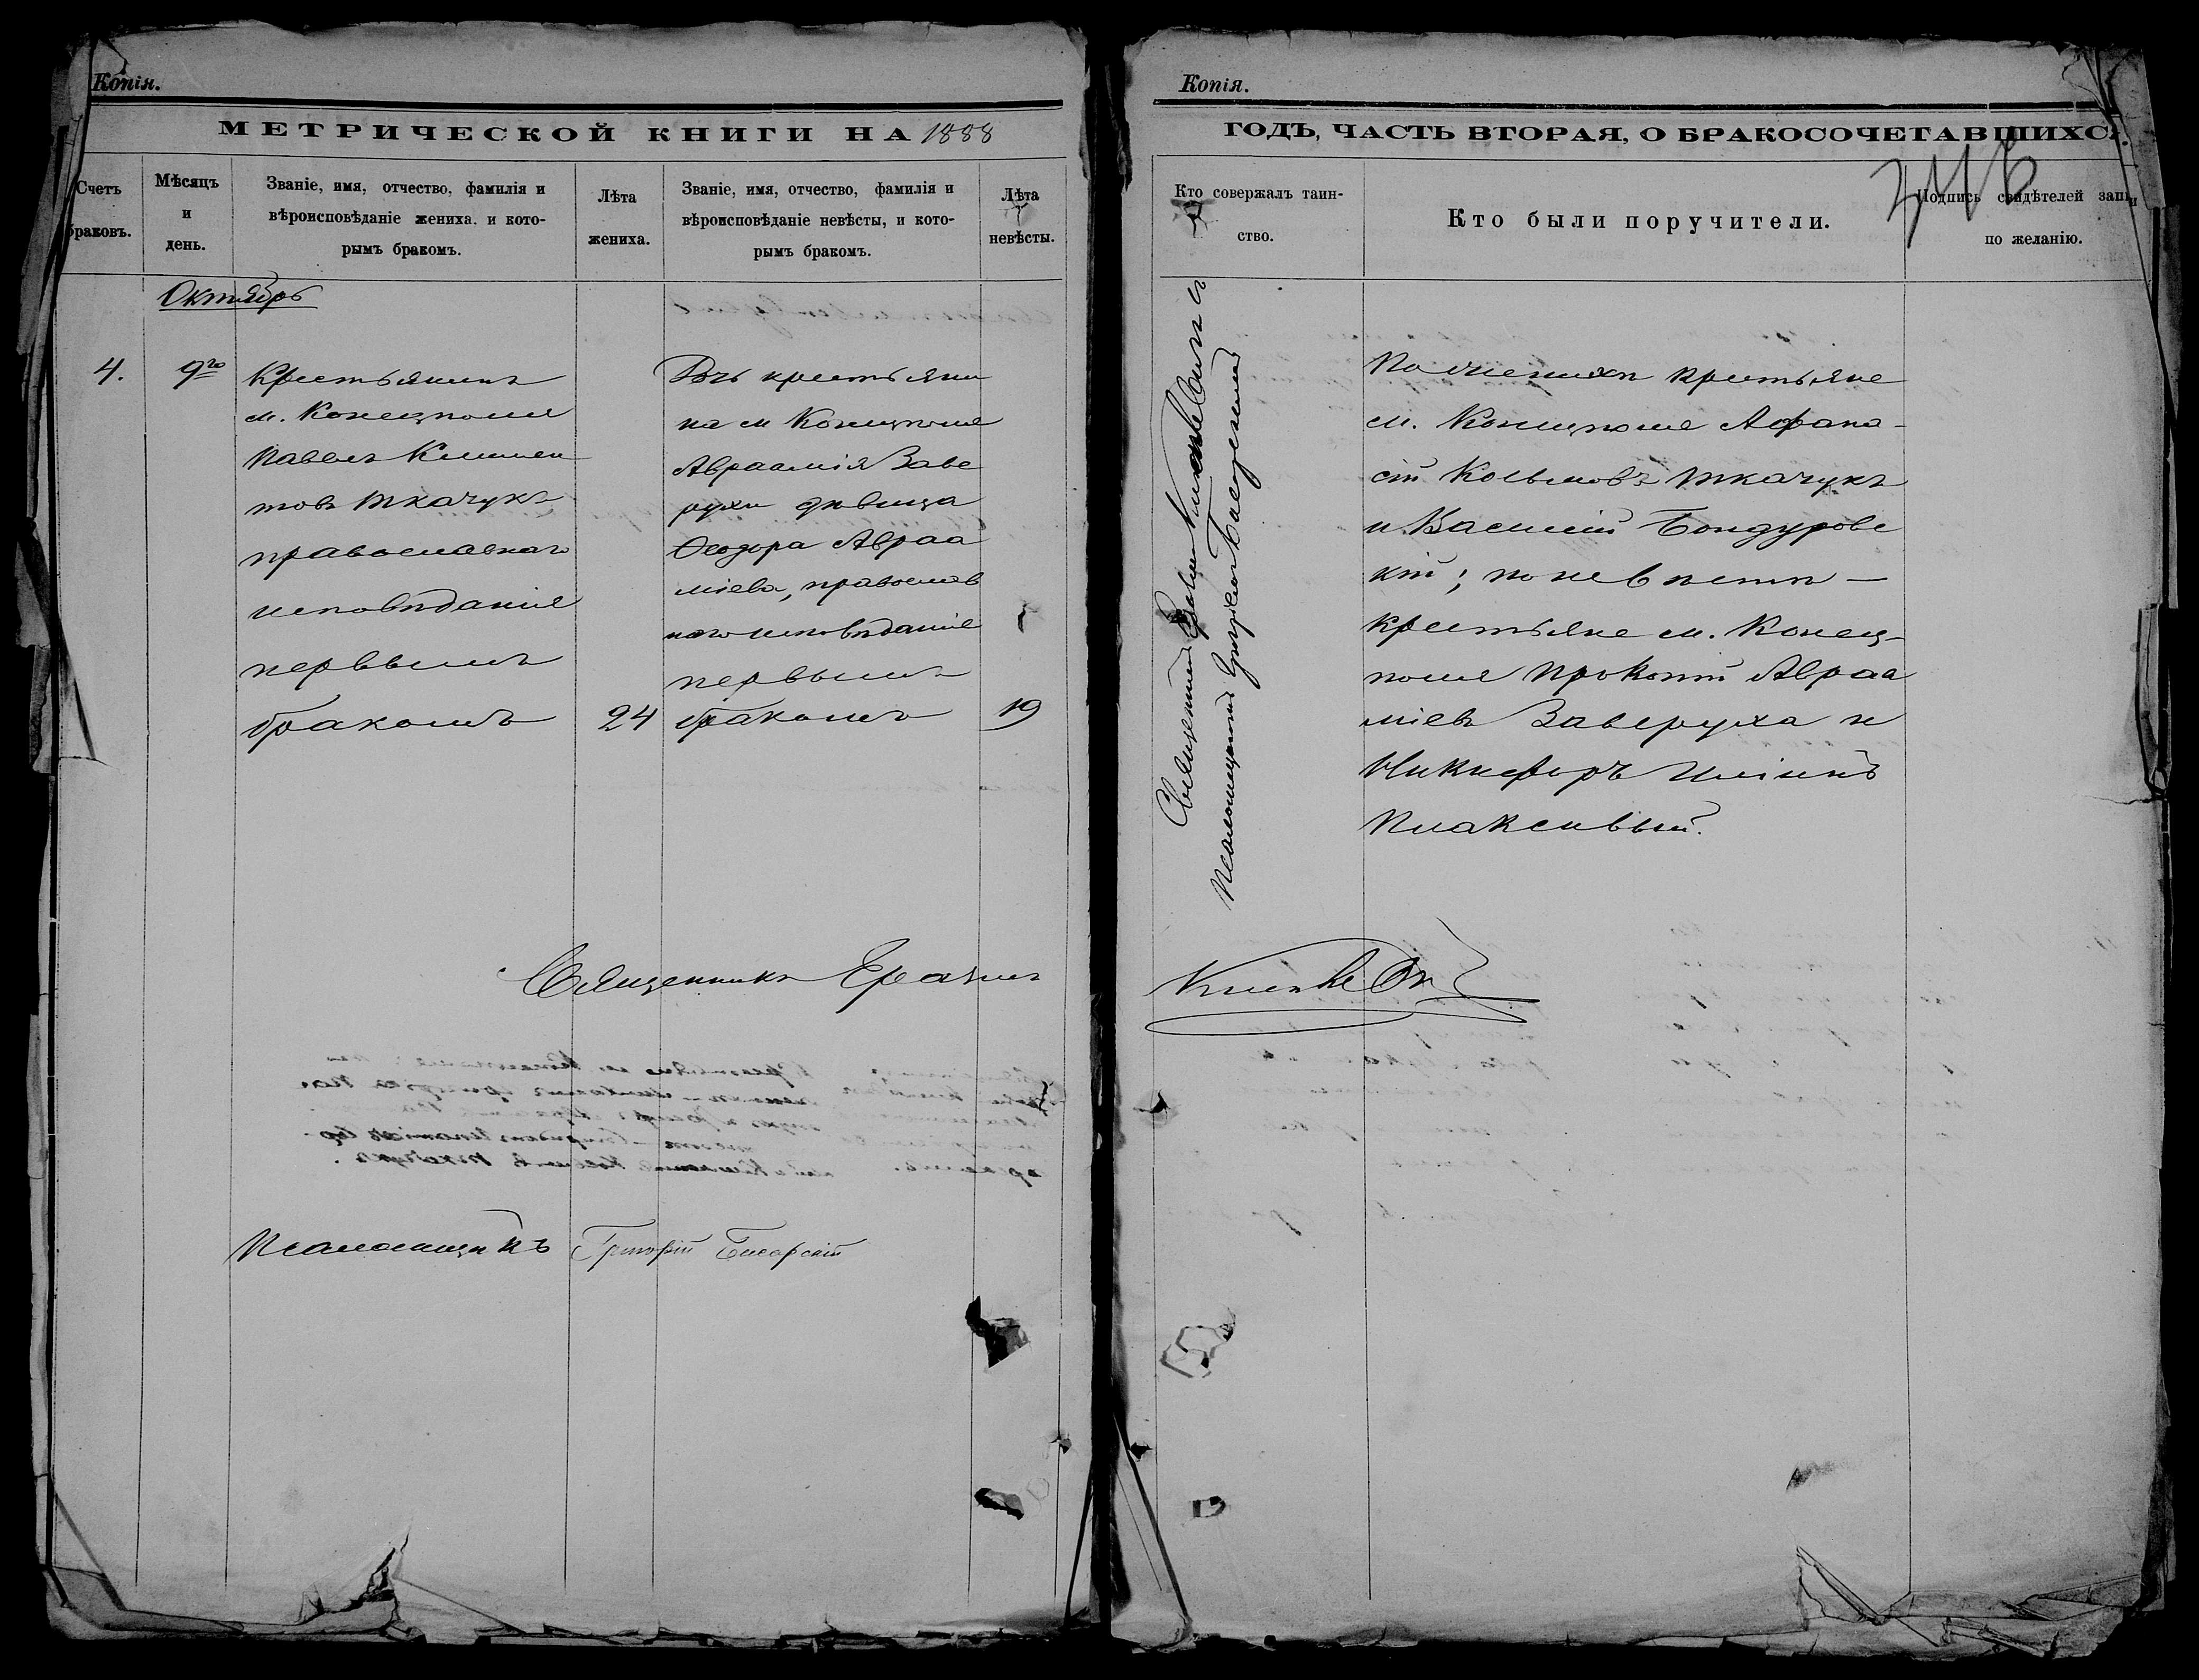 Копія.
МЕТРИЧЕСКОЙ КНИГИ НА 1888
Счетъ браковъ.
Мѣсяцъ и день.
Званіе, имя, отчество, фамилія и
вѣроисповѣданіе жениха, и кото-
рымъ бракомъ.
Лѣта
жениха.
Званіе, имя, отчество, фамилія и
вѣроисповѣданіе невѣсты, и кото-
рымъ бракомъ.
Лѣта
невѣсты.
Октябрь
4.
9го
Крестьянинъ
м. Конецполя
Павелъ Климен
товъ Ткачукъ
православнаго
исповѣданія
первымъ
бракомъ
24
Дочь крестьяни
на м Конецполя
Авраамія Заве
рухи дѣвица
Ѳеодора Авраа
міева, православ
наго исповѣданія
первымъ
бракомъ
19
Священникъ
Псаломщикъ Григорій
Копія.
ГОДЪ, ЧАСТЬ ВТОРАЯ, О БРАКОСОЧЕТАВШИХСЯ.
Кто совержалъ таин-
ство.
Кто были поручители.
Подпись свидѣтелей запи
по желанію.
Священникъ
Псаломщикъ Григорій
По женихѣ крестьяне
м. Конецполя Афана-
сій Косьмовъ Ткачукъ
и Василій Бондуровс
кій; по невѣстѣ —
крестьяне м. Конец-
поля Прокопій Авраа
міевъ Заверуха и
Никифоръ Иліинъ
Плаксивый.